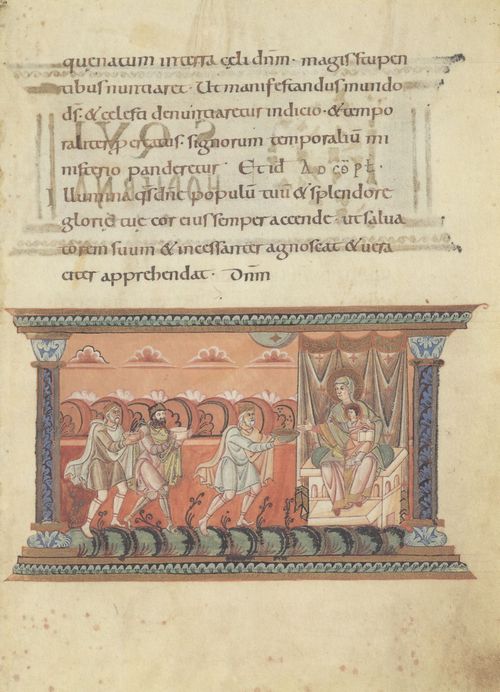 quęnatum interra cęli dn̄m · magis stupen
tibus nuntiaret · Ut manifestandus mundo
ds̄ · & celesti denuntiaretur indicio · & tempo
raliter procreatus · signorum temporaliū mi
nisterio panderetur · Et id AD CŌPL̄
Illumina qs dn̄e populū tuū & splendore
glorię tuę cor eius semper accende · ut salua
torem suum & incessanter agnoscat & uera
citer apprehendat · Dn̄m